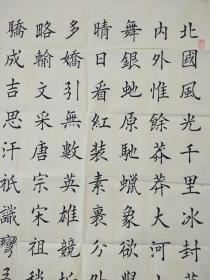 北國風光千里冰封
內外惟餘莽莽大河
舞銀虵原馳蠟象欲
晴日看紅裝素裹分外
多嬌引無數英雄競
略輸文采唐宗宋祖稍
驕成吉思汗祇識彎